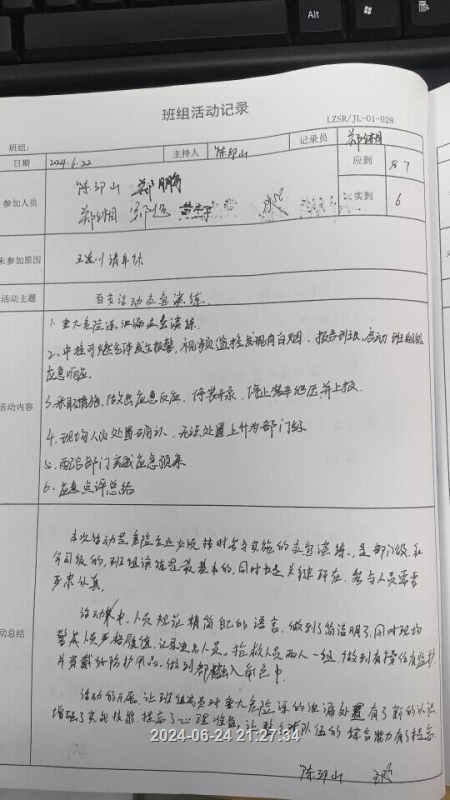 Alt
班组活动记录
LZSR/JL-01-028
班组:
日期 2024.6.22 主持人 陈印山 记录员
参加人员 陈印山 郑鹏 应到 7
实到 6
未参加原因 请年休
活动主题 应急演练
1.重大危险源泄漏应急演练.
2.中控可燃气体发生报警,视频监控发现有白烟,报告班长,启动班组级
应急响应.
3.采取措施,做出应急反应,停装车泵,停止装车泄压并上报.
4.现场人员处置确认,无法处置上升为部门级
活动内容
5.配合部门实战应急预案
6.应急点评总结
本次活动是危险企业必须按时去实施的应急演练,是部门级和
公司级的,班组演练是最基本的,同时也是关键所在,参与人员需要
严肃认真.
活动中,人员规范精简自己的语言,做到了简洁明了,同时现场
动总结
警戒人员严格履职,记录进出人员.抢救人员两人一组,做到有操作有监护,
并穿戴好防护用品,做到都融入角色中.
活动的开展,让班组成员对重大危险源的泄漏处置有了新的认识
增强了实战技能,提高了心理准备,让整个队伍的综合能力有了提高.
2024-06-24 21:27:34
陈印山